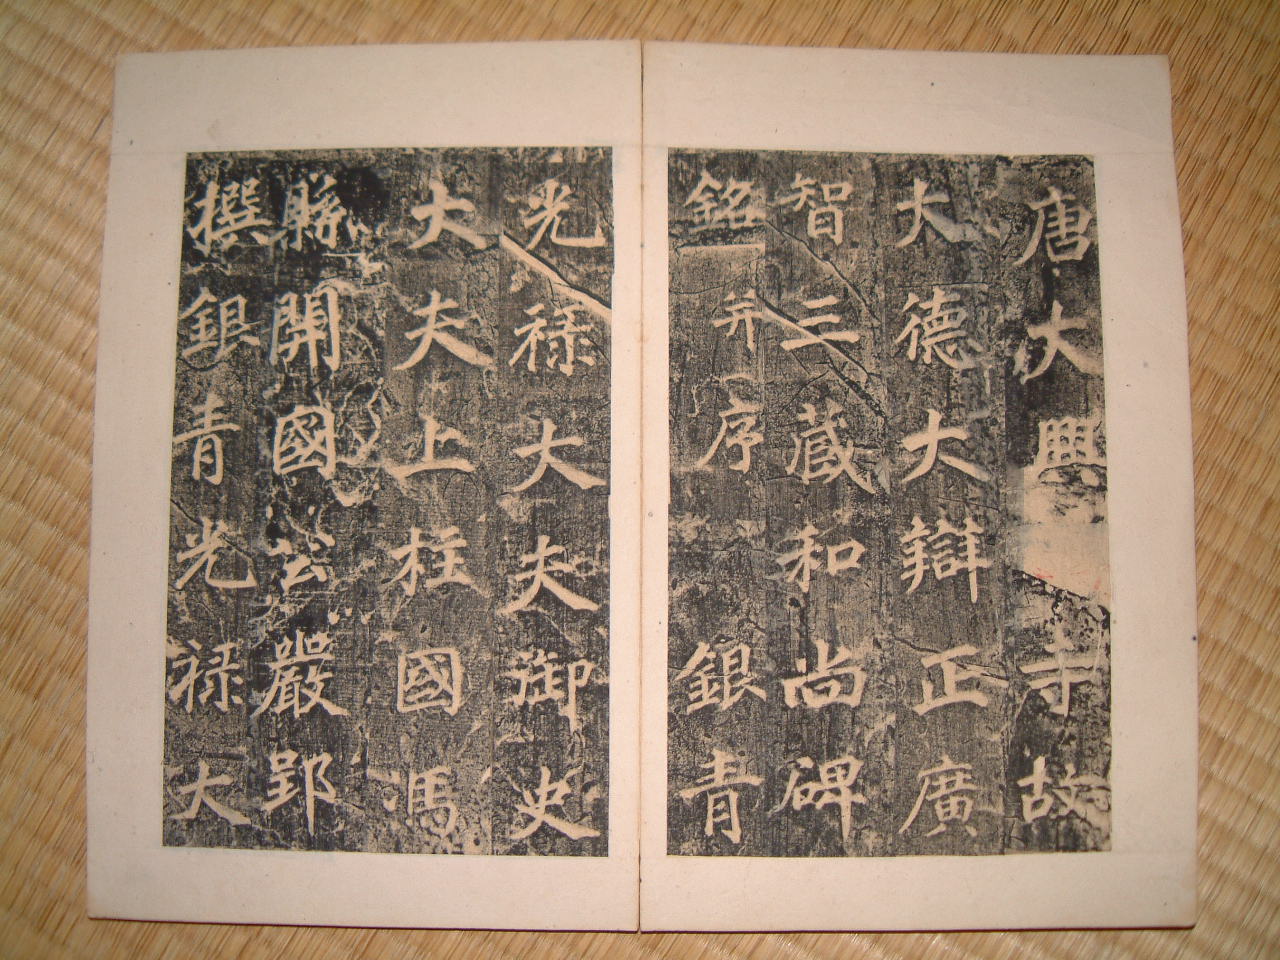 唐大興寺故
大德大辯正廣
智三藏和尚碑
銘并序銀青
光祿大夫御史
大夫上柱國馮
縣開國公嚴郢
撰銀青光祿大